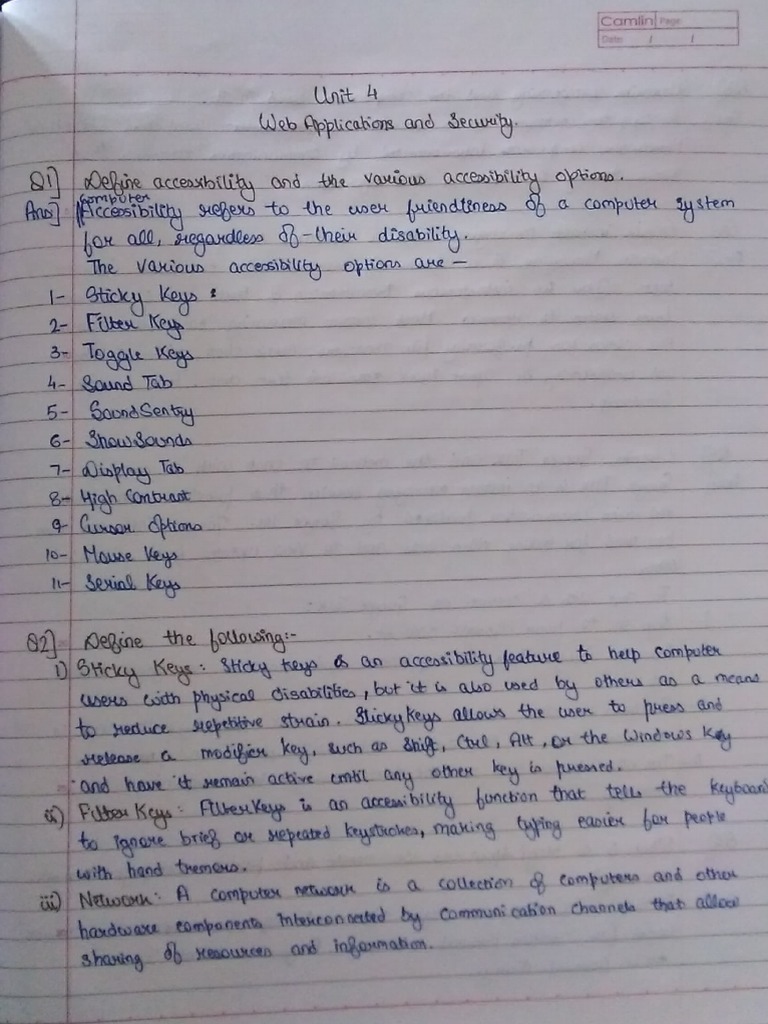 Camlin Page
Date: / /
Unit 4
Web Applications and Security.
Q1] Define accessibility and the various accessibility options.
computer
Ans] Accessibility refers to the user friendliness of a computer system
for all, regardless of their disability.
The various accessibility options are –
1- Sticky Keys :
2- Filter Keys
3- Toggle Keys
4- Sound Tab
5- SoundSentry
6- ShowSounds
7- Display Tab
8- High Contrast
9- Cursor Options
10- Mouse Keys
11- Serial Keys
Q2] Define the following:-
i) Sticky Keys : Sticky keys is an accessibility feature to help computer
users with physical disabilities, but it is also used by others as a means
to reduce repetitive strain. Sticky Keys allows the user to press and
release a modifier key, such as Shift, Ctrl, Alt, or the Windows Key
and have it remain active until any other key is pressed.
ii) Filter Keys : FilterKeys is an accessibility function that tells the keyboard
to ignore brief or repeated keystrokes, making typing easier for people
with hand tremors.
iii) Network : A computer network is a collection of computers and other
hardware components interconnected by communication channels that allow
sharing of resources and information.